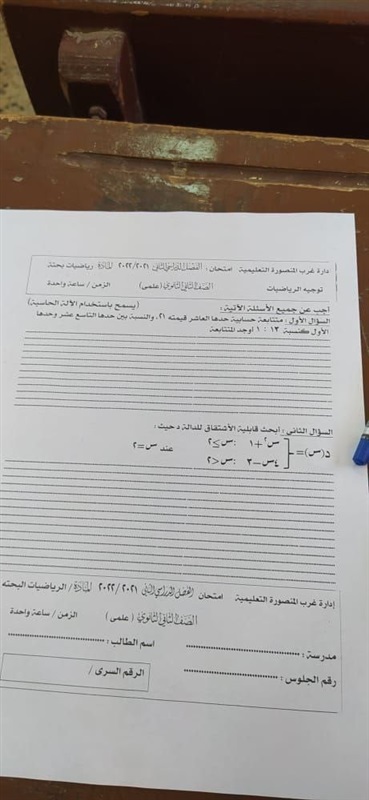 إدارة غرب المنصورة التعليمية امتحان : الفصل الدراسى الثانى ٢٠٢٢/٢٠٢١ المادة/ رياضيات بحتة
توجيه الرياضيات الصف الثانى الثانوى (علمى) الزمن / ساعة واحدة
أجب عن جميع الأسئلة الآتية : (يسمح باستخدام الآلة الحاسبة)
السؤال الأول : متتابعة حسابية حدها العاشر قيمته ٢١، والنسبة بين حدها التاسع عشر وحدها
الأول كنسبة ١٣ : ١ أوجد المتتابعة
السؤال الثانى : أبحث قابلية الأشتقاق للدالة د حيث :
س٢+١ :س≤٢
د(س)= عند س=٢
٤س–٣ :س>٢
إدارة غرب المنصورة التعليمية امتحان الفصل الدراسى الثانى ٢٠٢٢/٢٠٢١ المادة / الرياضيات البحته
الصف الثانى الثانوى (علمى) الزمن / ساعة واحدة
مدرسة : اسم الطالب :
رقم الجلوس : الرقم السرى /